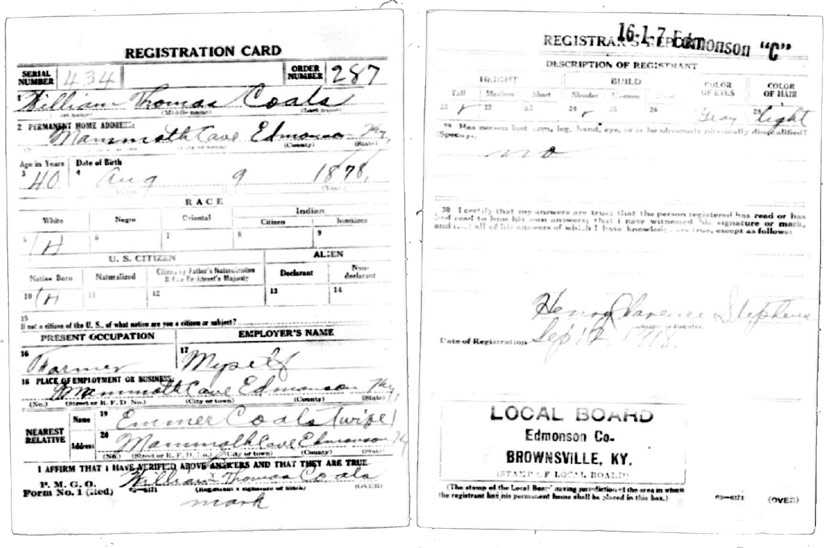 REGISTRATION CARD
SERIAL NUMBER 434 ORDER NUMBER 287
1 William Thomas Coals
(First name) (Middle name) (Last name)
2 PERMANENT HOME ADDRESS:
Mammoth Cave Edmonson Ky.
(County) (State)
Age in Years Date of Birth
3 40 4 Aug 9 1878.
RACE
White Negro Oriental Indian
Citizen
5 6 7 8 9
U. S. CITIZEN ALIEN
Native Born Naturalized Citizen by Father's Naturalization Before Registrant's Majority Declarant Non-declarant
10 11 12 13 14
15
If not a citizen of the U. S., of what nation are you a citizen or subject?
PRESENT OCCUPATION EMPLOYER'S NAME
16 Farmer 17 Myself
18 PLACE OF EMPLOYMENT OR BUSINESS:
Mammoth Cave Edmonson Ky.
(No.) (Street or R. F. D. No.) (City or town) (County) (State)
NEAREST RELATIVE Name 19 Emmer Coals (wife)
Address 20 Mammoth Cave Edmonson Ky
(No.) (Street or R. F. D. No.) (City or town) (County) (State)
I AFFIRM THAT I HAVE VERIFIED ABOVE ANSWERS AND THAT THEY ARE TRUE
P. M. G. O.
Form No. 1 (Red) William Thomas Coals
(Registrant's signature or mark) (OVER)
mark
16-1-7 Edmonson "C"
REGISTRAR'S REPORT
DESCRIPTION OF REGISTRANT
HEIGHT BUILD COLOR OF EYES COLOR OF HAIR
Tall Medium Short Slender Medium
21 22 23 24 25 26 Gray 28 light
29 Has person lost arm, leg, hand, eye, or is he obviously physically disqualified?
(Specify.)
no
30 I certify that my answers are true; that the person registered has read or has
had read to him his own answers; that I have witnessed his signature or mark,
and that all of his answers of which I have knowledge are true, except as follows:
Henry Clarence Stephens
Date of Registration Sep 12 1918.
LOCAL BOARD
Edmonson Co-
BROWNSVILLE, KY.
(STAMP OF LOCAL BOARD)
(The stamp of the Local Board having jurisdiction of the area in which
the registrant has his permanent home shall be placed in this box.)
(OVER)